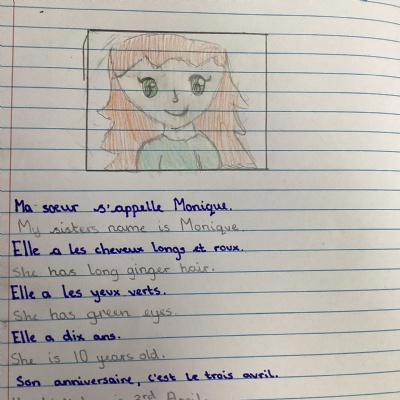 Ma soeur s'appelle Monique.
My sisters name is Monique.
Elle a les cheveux longs et roux.
She has long ginger hair.
Elle a les yeux verts.
She has green eyes.
Elle a dix ans.
She is 10 years old.
Son anniversaire, c'est le trois avril.
3rd April.